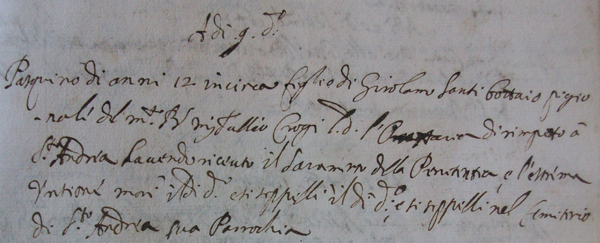 Adi 9 do
Pasquino di anni 12 incirca figlio di Girolamo Santi bottaio pigio
-nale del Crogi l.d. di rimpeto à
Sto Andrea havendo riceuto il Saramento della Penitentia, e l'estrema
Untione morì il dì do e si seppellì il dì do, e si seppellì nel Cimiterio
di Sto Andrea sua Parrochia